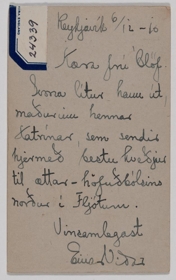 24339
Reykjavík 6/12 - 10
Kæra frú Ólöf.
Svona lítur hann út
maðurinn hennar
Katrínar, sem sendir
hjermeð bestu kveðjur
til ættar-höfuðbólsins
norður í Fljótum.
Vinsamlegast